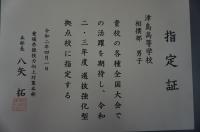 指定証
津島高等学校
相撲部 男子
貴校の各種全国大会で
の活躍を期待し、令和
二・三年度選抜強化型
拠点校に指定する
令和二年四月一日
愛媛県競技力向上対策本部
本部長 八矢 拓